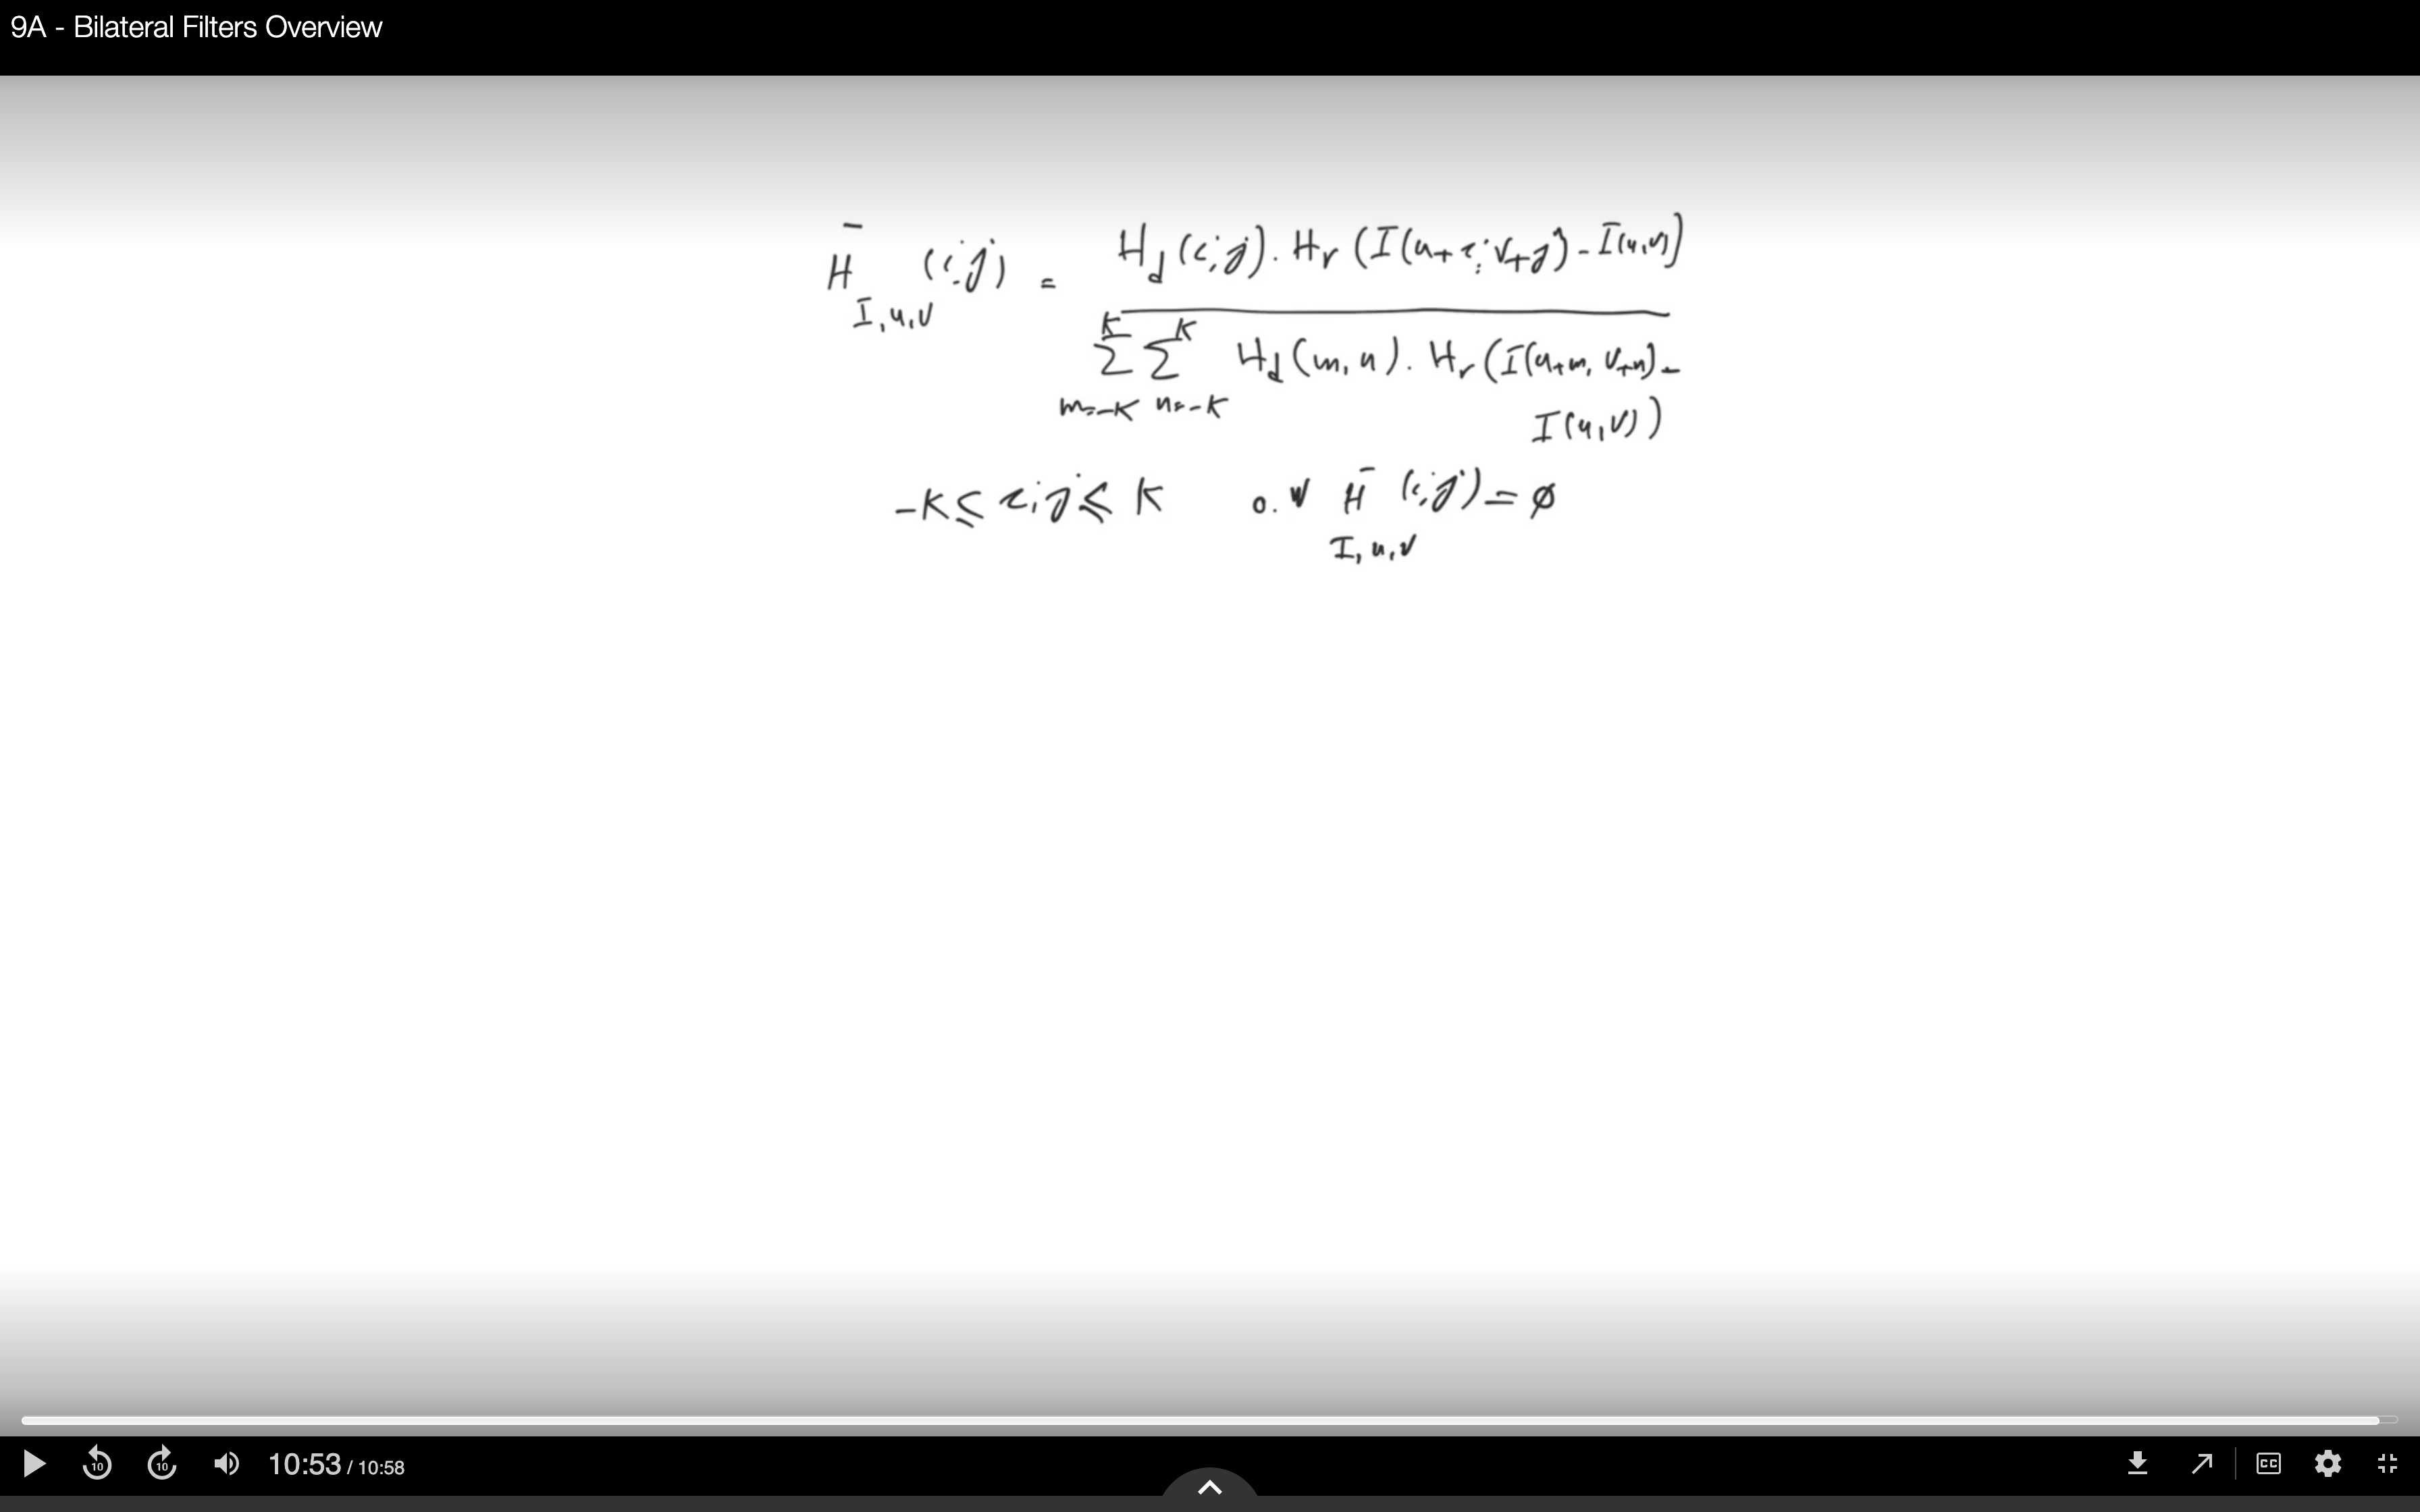 9A - Bilateral Filters Overview
H̄_{I,u,v} (i,j) = \frac{H_d(i,j) · H_r(I(u+i, v+j) - I(u,v))}{\sum_{m=-K}^{K} \sum_{n=-K}^{K} H_d(m,n) · H_r(I(u+m, v+n) - I(u,v))}
-K ≤ i,j ≤ K o.w H̄_{I,u,v} (i,j) = ∅
10 10 10:53 / 10:58 CC